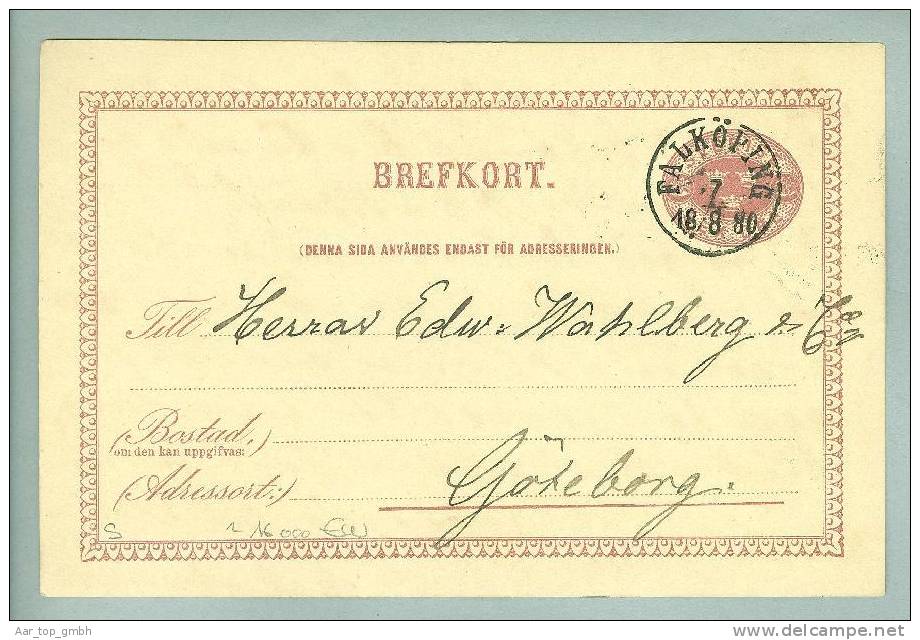 BREFKORT.
FALKÖPING
7
18 8 80
(DENNA SIDA ANVÄNDES ENDAST FÖR ADRESSERINGEN.)
Till Herrar Edw. Wahlberg & Co
(Bostad,)
(om den kan uppgifvas:)
(Adressort:) Göteborg.
S
16 000
Aar_top_gmbh
www.delcampe.net